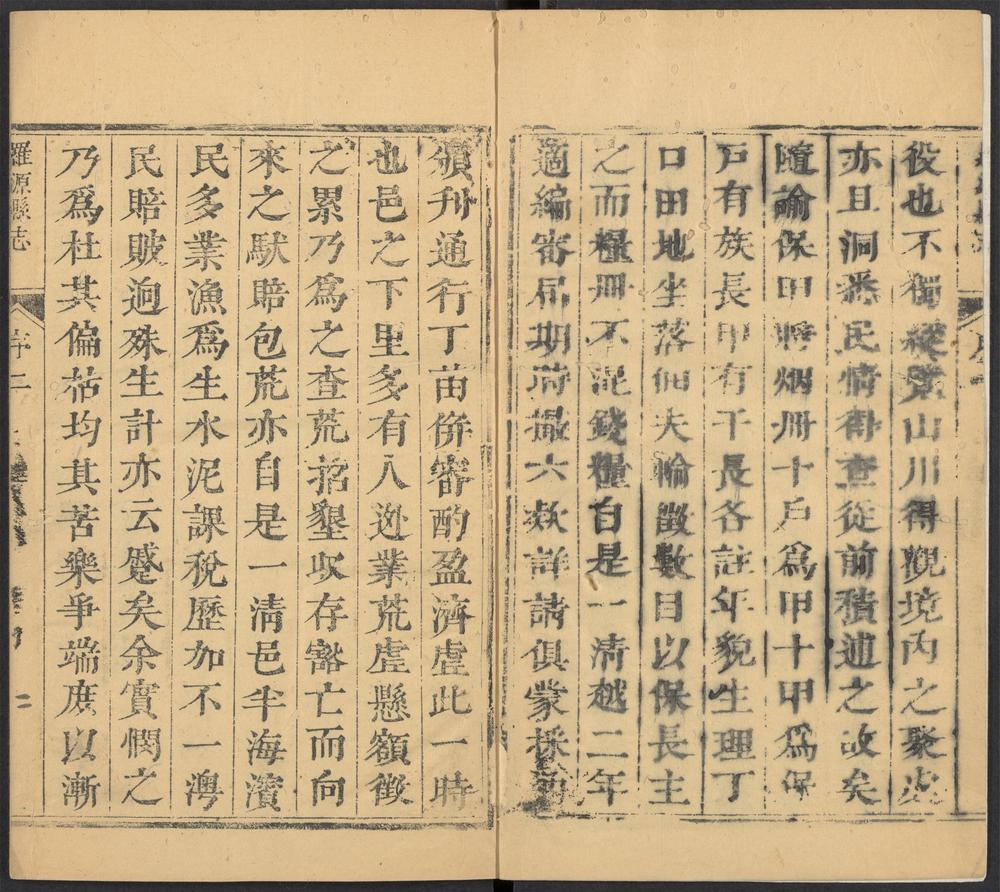 役也不獨縱覽山川得觀境內之聚
亦且洞悉民情稽查從前積逋之故矣
隨諭保甲將烟冊十戶爲甲十甲爲保
戶有族長甲有千長各註年貌生理丁
口田地坐落佃夫輸徵數目以保長主
之而糧冊不混錢糧自是一清越二年
適編審屆期時撮六欵詳請俱蒙採
頒刋通行丁苗併審酌盈濟虛此一時
也邑之下里多有入逃業荒虛懸額徵
之累乃爲之查荒招墾収存豁亡而向
來之馱賠包荒亦自是一清邑半海濱
民多業漁爲生水泥課稅歷加不一澚
民賠賍逈殊生計亦云蹙矣余實憫之
乃爲杜其偏枯均其苦樂爭端庶以漸
羅源縣志
序二
二